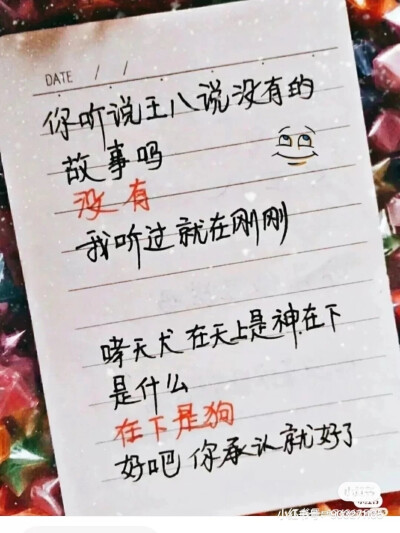 DATE / /
你听说王八说没有的
故事吗
没有
我听过就在刚刚
哮天犬在天上是神在下
是什么
在下是狗
好吧 你承认就好了